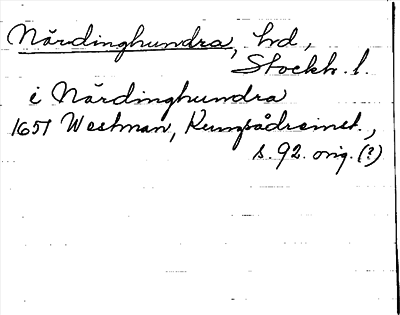 Närdinghundra, hd,
Stockh. l.
i Närdinghundra
1651 Westman, Kungsådreinst.,
s. 92. orig. (?)